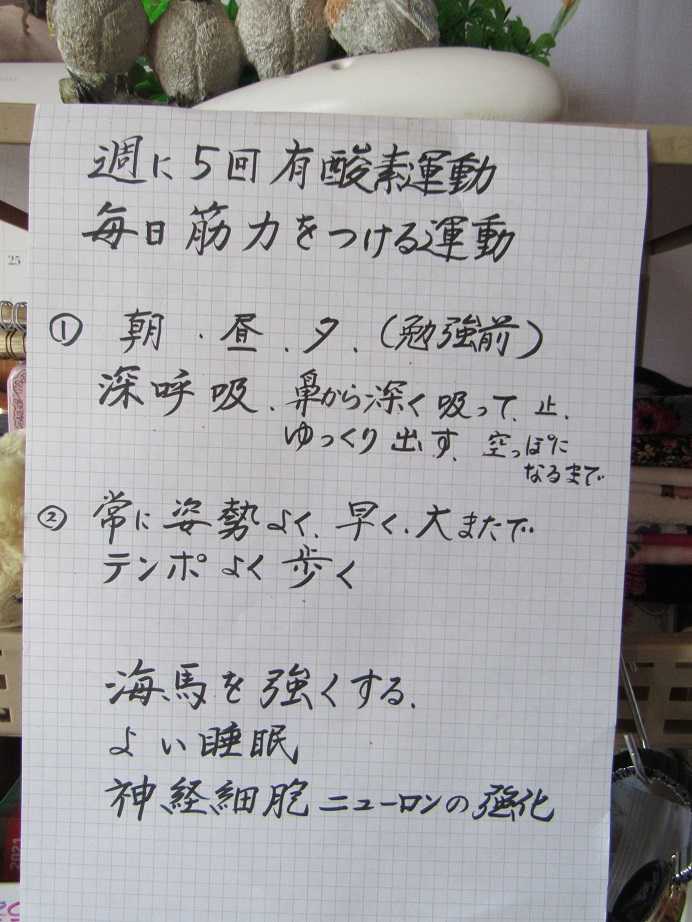 週に5回有酸素運動
毎日筋力をつける運動
① 朝．昼．夕．(勉強前)
深呼吸．鼻から深く吸って、止．
ゆっくり出す．空っぽに
なるまで
② 常に姿勢よく、早く、大またで
テンポよく歩く
海馬を強くする．
よい睡眠
神経細胞ニューロンの強化
25
2021